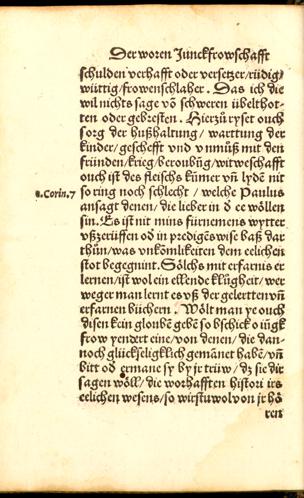 Der woren Junckfrowschafft
schulden verhafft oder versetzer/rüdig/
wüttig/frowenschlaher. Das ich die
wil nichts sage vō schweren übelthot-
ten oder gebresten. Hierzů ryset ouch
sorg der hußhaltung/ warttung der
kinder/geschefft vnd vnmůß mit den
fründen/krieg/beroubūg/witweschafft
ouch ist des fleischs kůmer vn̄ lydē nit
so ring noch schlecht/ welche Paulus
1.Corin.7
ansagt denen/ die lieber in d ee wöllen
sin. Es ist nit mins fürnemens wytter
vßzerüffen od in predigēswise baß dar
thůn/was vnkōmlikeiten dem eelichen
stot begegnint. Sölchs mit erfarnis er
lernen/ist wol ein ellende klůgheit/ wer
weger man lernt es vß der gelertten vn̄
erfarnen bücher. Wölt man ye ouch
disen kein gloubē gebē so bschick o iügk
frow yendert eine/von denen/ die dan-
noch glückseligklich gemānet habē/vn̄
bitt od ermane sy by jr trüw/ dz sie dir
sagen wöll/ die worhafften histori irs
eelichen wesens/so wirstu wol von jr hö
ren